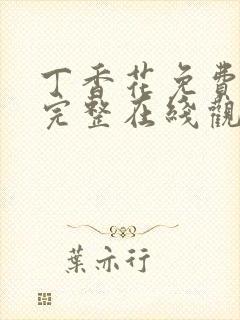 丁香花免費
完整在綫觀
葉亦行